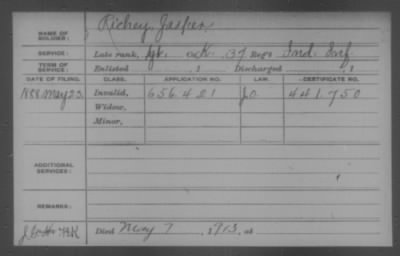 NAME OF SOLDIER: Richey, Jasper
SERVICE: Late rank, Co. K, 37 Reg't Ind. Inf.
TERM OF SERVICE: Enlisted , 1 Discharged , 1
DATE OF FILING. CLASS. APPLICATION NO. LAW. CERTIFICATE NO.
May 23 Invalid, 656.421 441.750
Widow,
Minor,
ADDITIONAL SERVICES:
REMARKS:
Died May 7, 1913, at